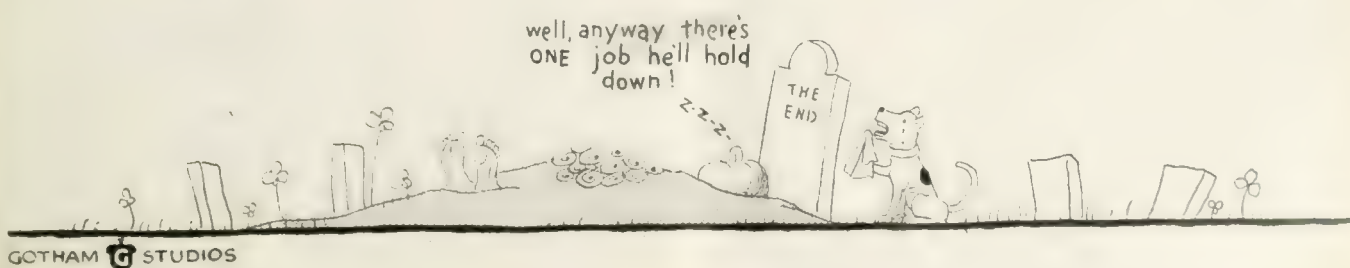 well, anyway there's
ONE job he'll hold
down!
Z-Z-Z-
THE
END
GOTHAM G STUDIOS